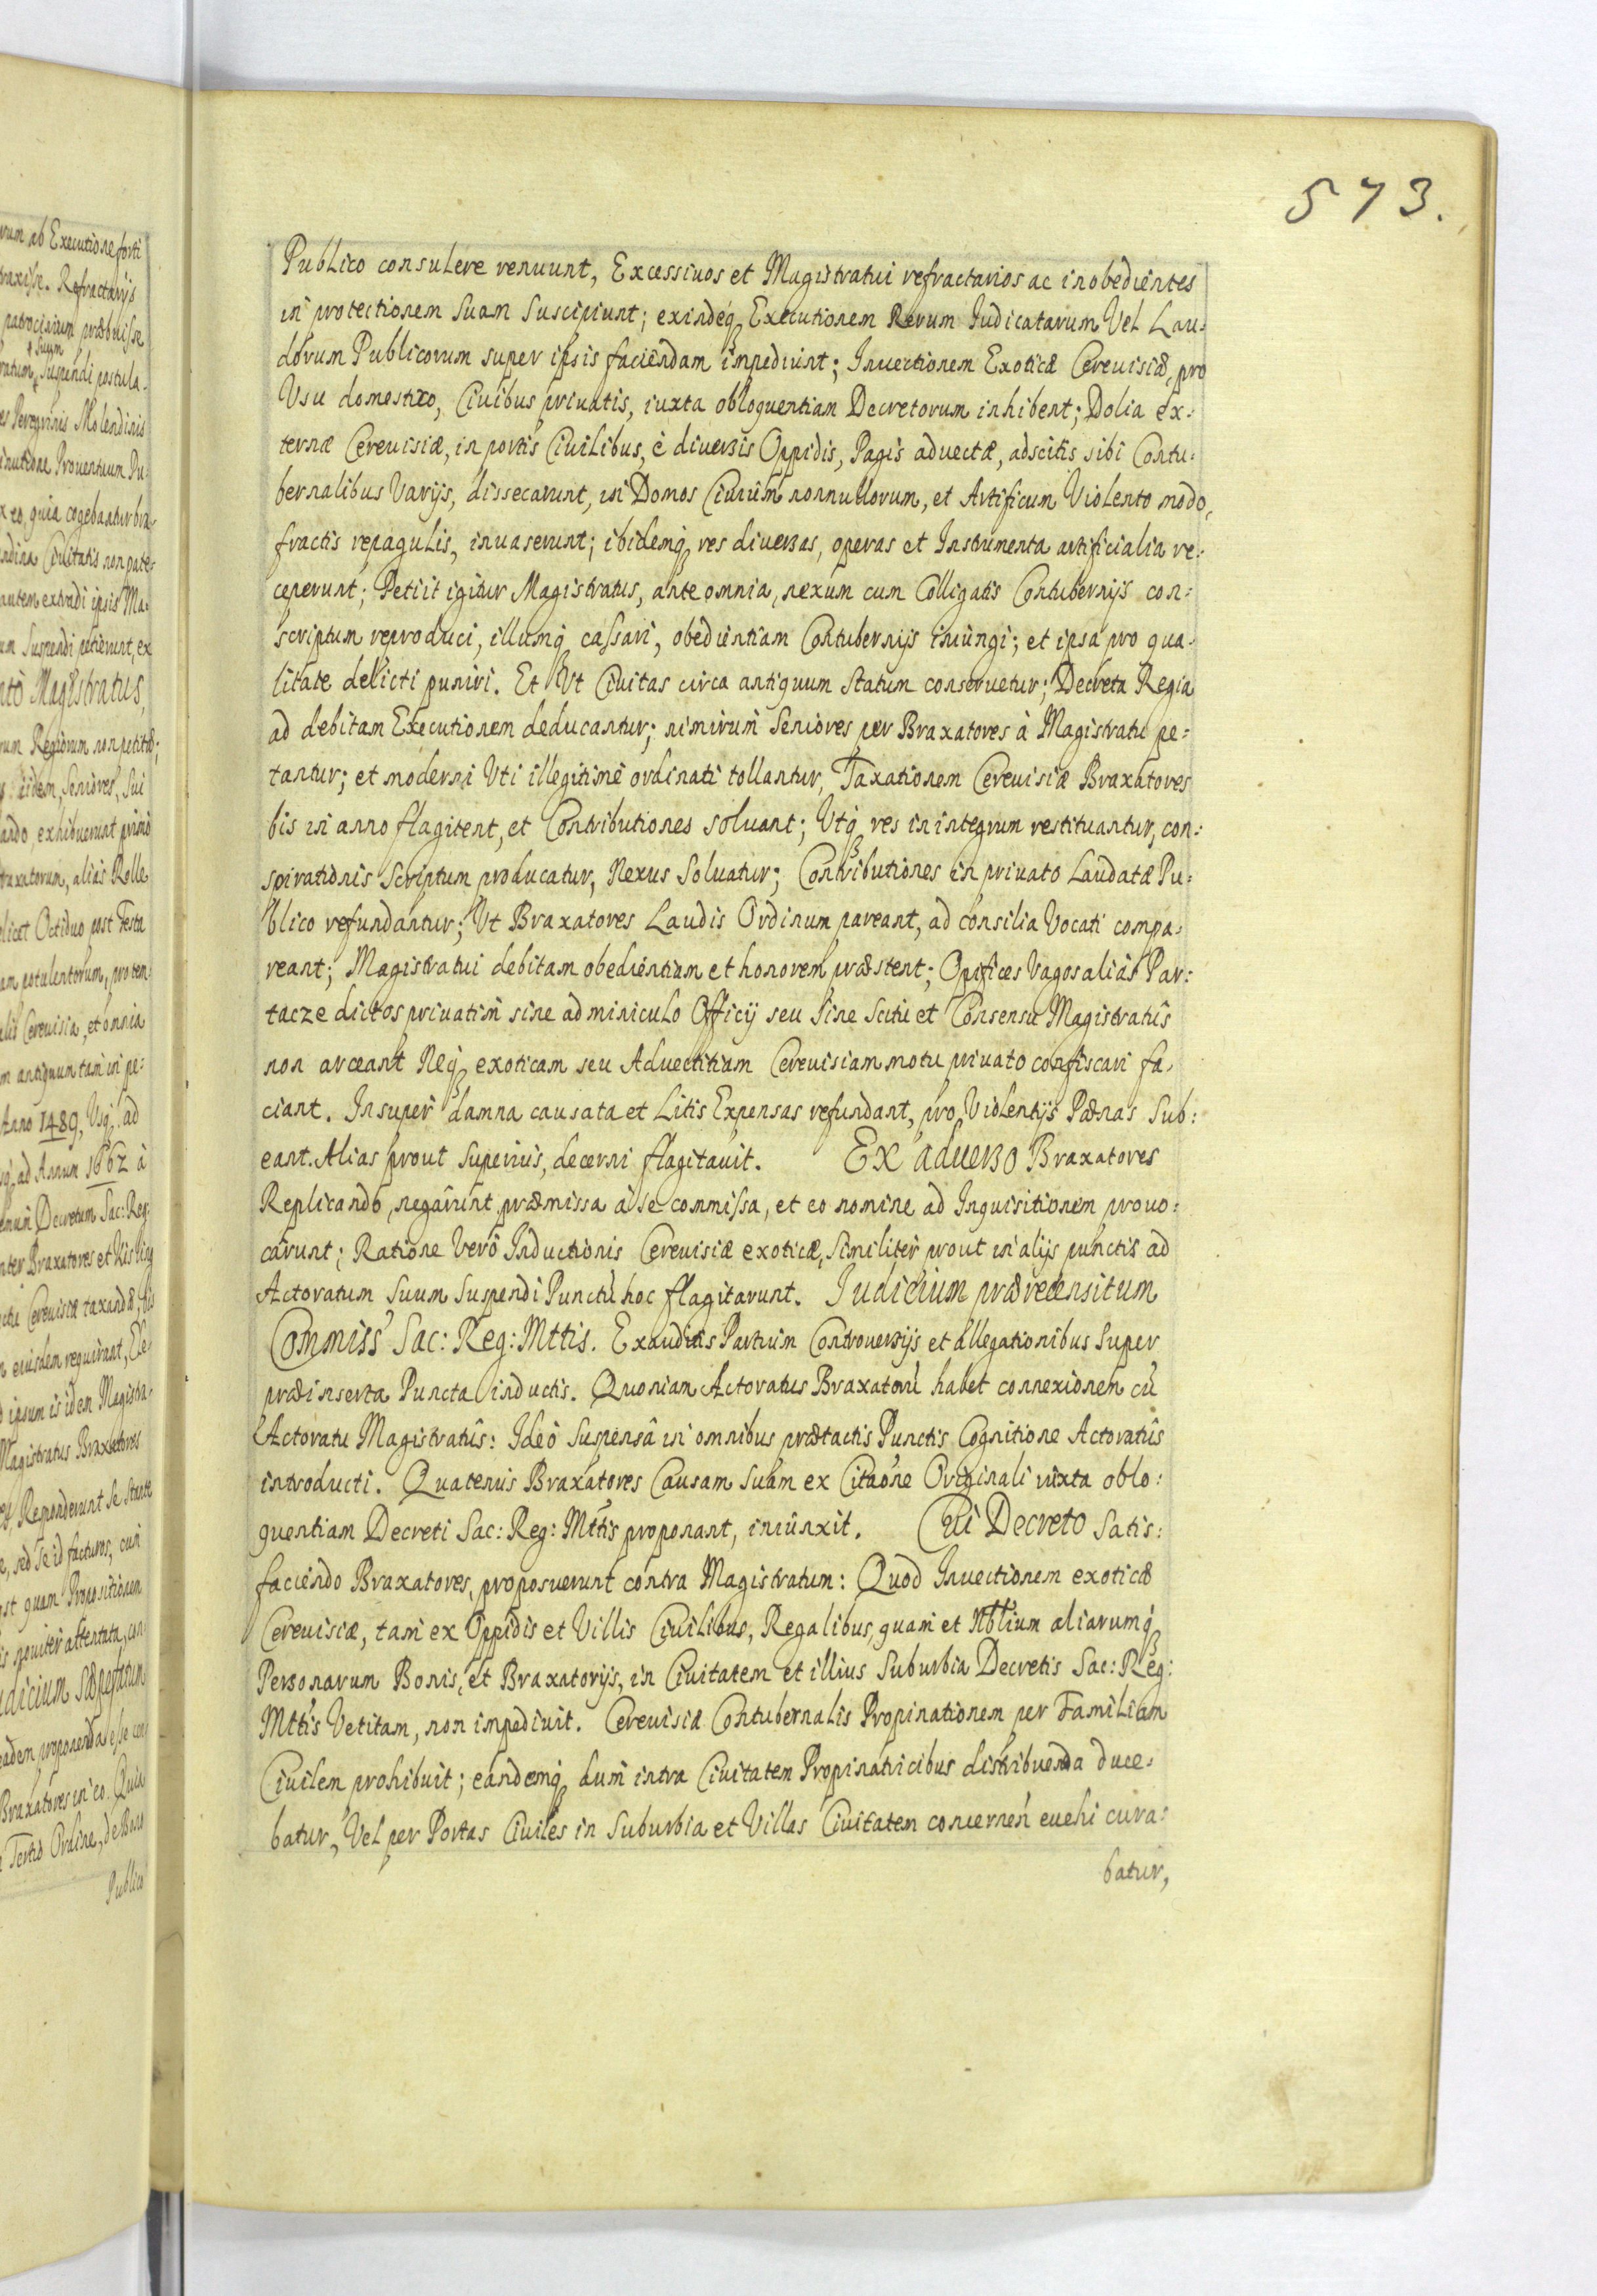 573.
Publico consulere renuunt, Excessiuos et Magistratui refractarios ac inobedientes
in protectionem Suam Suscipiunt; exindeq3 Executionem Rerum Iudicatarum Vel Lau:
dorum Publicorum super ipsis faciendam impediunt; Inuectionem Exoticæ Cereuisiæ, pro
Usu domestico, Ciuibus priuatis, iuxta obloquentiam Decretorum inhibent; Dolia ex:
ternæ Cereuisiæ, in portis Ciuilibus, è diuersis Oppidis, Pagis aduectæ, adscitis sibi Contu:
bernalibus Varijs, dissecarunt, in Domos Ciuium nonnullorum, et Artificum Violento modo,
fractis repagulis, inuaserunt; ibidemq3 res diuersas, operas et Instrumenta artificialia re:
ceperunt; Petiit igitur Magistratus, ante omnia, nexum cum Colligatis Contubernijs con:
scriptum reproduci, illumq3 cassari, obedientiam Contubernijs iniungi; et ipsa pro qua:
litate delicti puniri. Et Vt Ciuitas circa antiquum Statum conseruetur; Decreta Regia
ad debitam Executionem deducantur; nimirum Seniores per Braxatores à Magistratu pe:
tantur; et moderni Vti illegitimè ordinati tollantur, Taxationem Cereuisiæ Braxatores
bis in anno flagitent, et Contributiones soluant; Vtq3 res in integrum restituantur, con:
spirationis Scriptum producatur, Nexus Soluatur; Contributiones in priuato Laudatæ Pu:
blico refundantur; Vt Braxatores Laudis Ordinum pareant, ad consilia Vocati compa:
reant; Magistratui debitam obedientiam et honorem præstent; Opifices Vagos aliàs Par:
tacze dictos priuatim sine adminiculo Officij seu Sine Scitu et Consensu Magistratûs
non arceant Neq3 exoticam seu Aduectitiam Cereuisiam motu priuato confiscari fa:
ciant. Insuper damna causata et Litis Expensas refundant, pro Violentijs Pænas Sub:
eant. Alias prout Superius, decerni flagitauit. Ex aduerso Braxatores
Replicando, negârunt præmissa à se commissa, et eo nomine ad Inquisitionem prouo:
carunt; Ratione Verò Inductionis Cereuisiæ exoticæ, Similiter prout in alijs punctis ad
Actoratum Suum Suspendi Punctũ hoc flagitarunt. Iudicium præcensitum
Commiss' Sac: Reg: Mttis. Exauditis Partium Controuersijs et allegationibus Super
præinserta Puncta inductis. Quoniam Actoratus Braxatorũ habet connexionem cũ
Actoratu Magistratûs: Ideò Suspensâ in omnibus prætactis Punctis Cognitione Actoratûs
introducti. Quatenus Braxatores Causam Suam ex Citaõne Originali iuxta oblo:
quentiam Decreti Sac: Reg: Mttis proponant, iniûnxit. Cui Decreto Satis:
faciendo Braxatores, proposuerunt contra Magistratum: Quod Inuectionem exoticæ
Cereuisiæ, tam ex Oppidis et Villis Ciuilibus, Regalibus, quam et Nbtium aliarumq3
Personarum Bonis, et Braxatorijs, in Ciuitatem et illius Suburbia Decretis Sac: Reg:
Mttis Vetitam, non impediuit. Cereuisiæ Contubernalis Propinationem per Familiam
Ciuilem prohibuit; eandemq3 dum intra Ciuitatem Propinatricibus distribuenda duce:
batur, Vel per Portas Ciuiles in Suburbia et Villas Ciuitatem concernen̄ euehi cura:
batur,